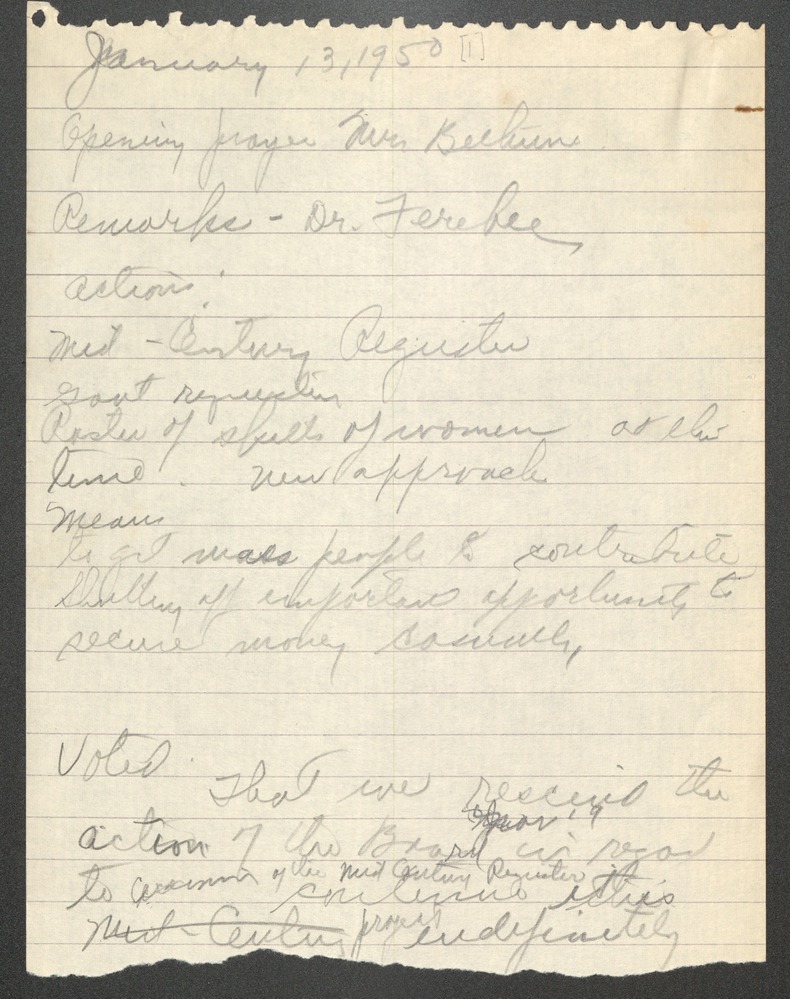 January 13, 1950 [1]
Opening prayer Mrs Bethune
Remarks - Dr. Ferebee
actions:
Mid - Century Register
Govt requesting
Roster of skills of women at this
time. new approach
Means
to get mass people to contribute
Shutting off important opportunity to
secure money
Voted
That we rescind the
action of the Board in regard
to of the Mid Century Register
continue this
Mid-Century project indefinitely